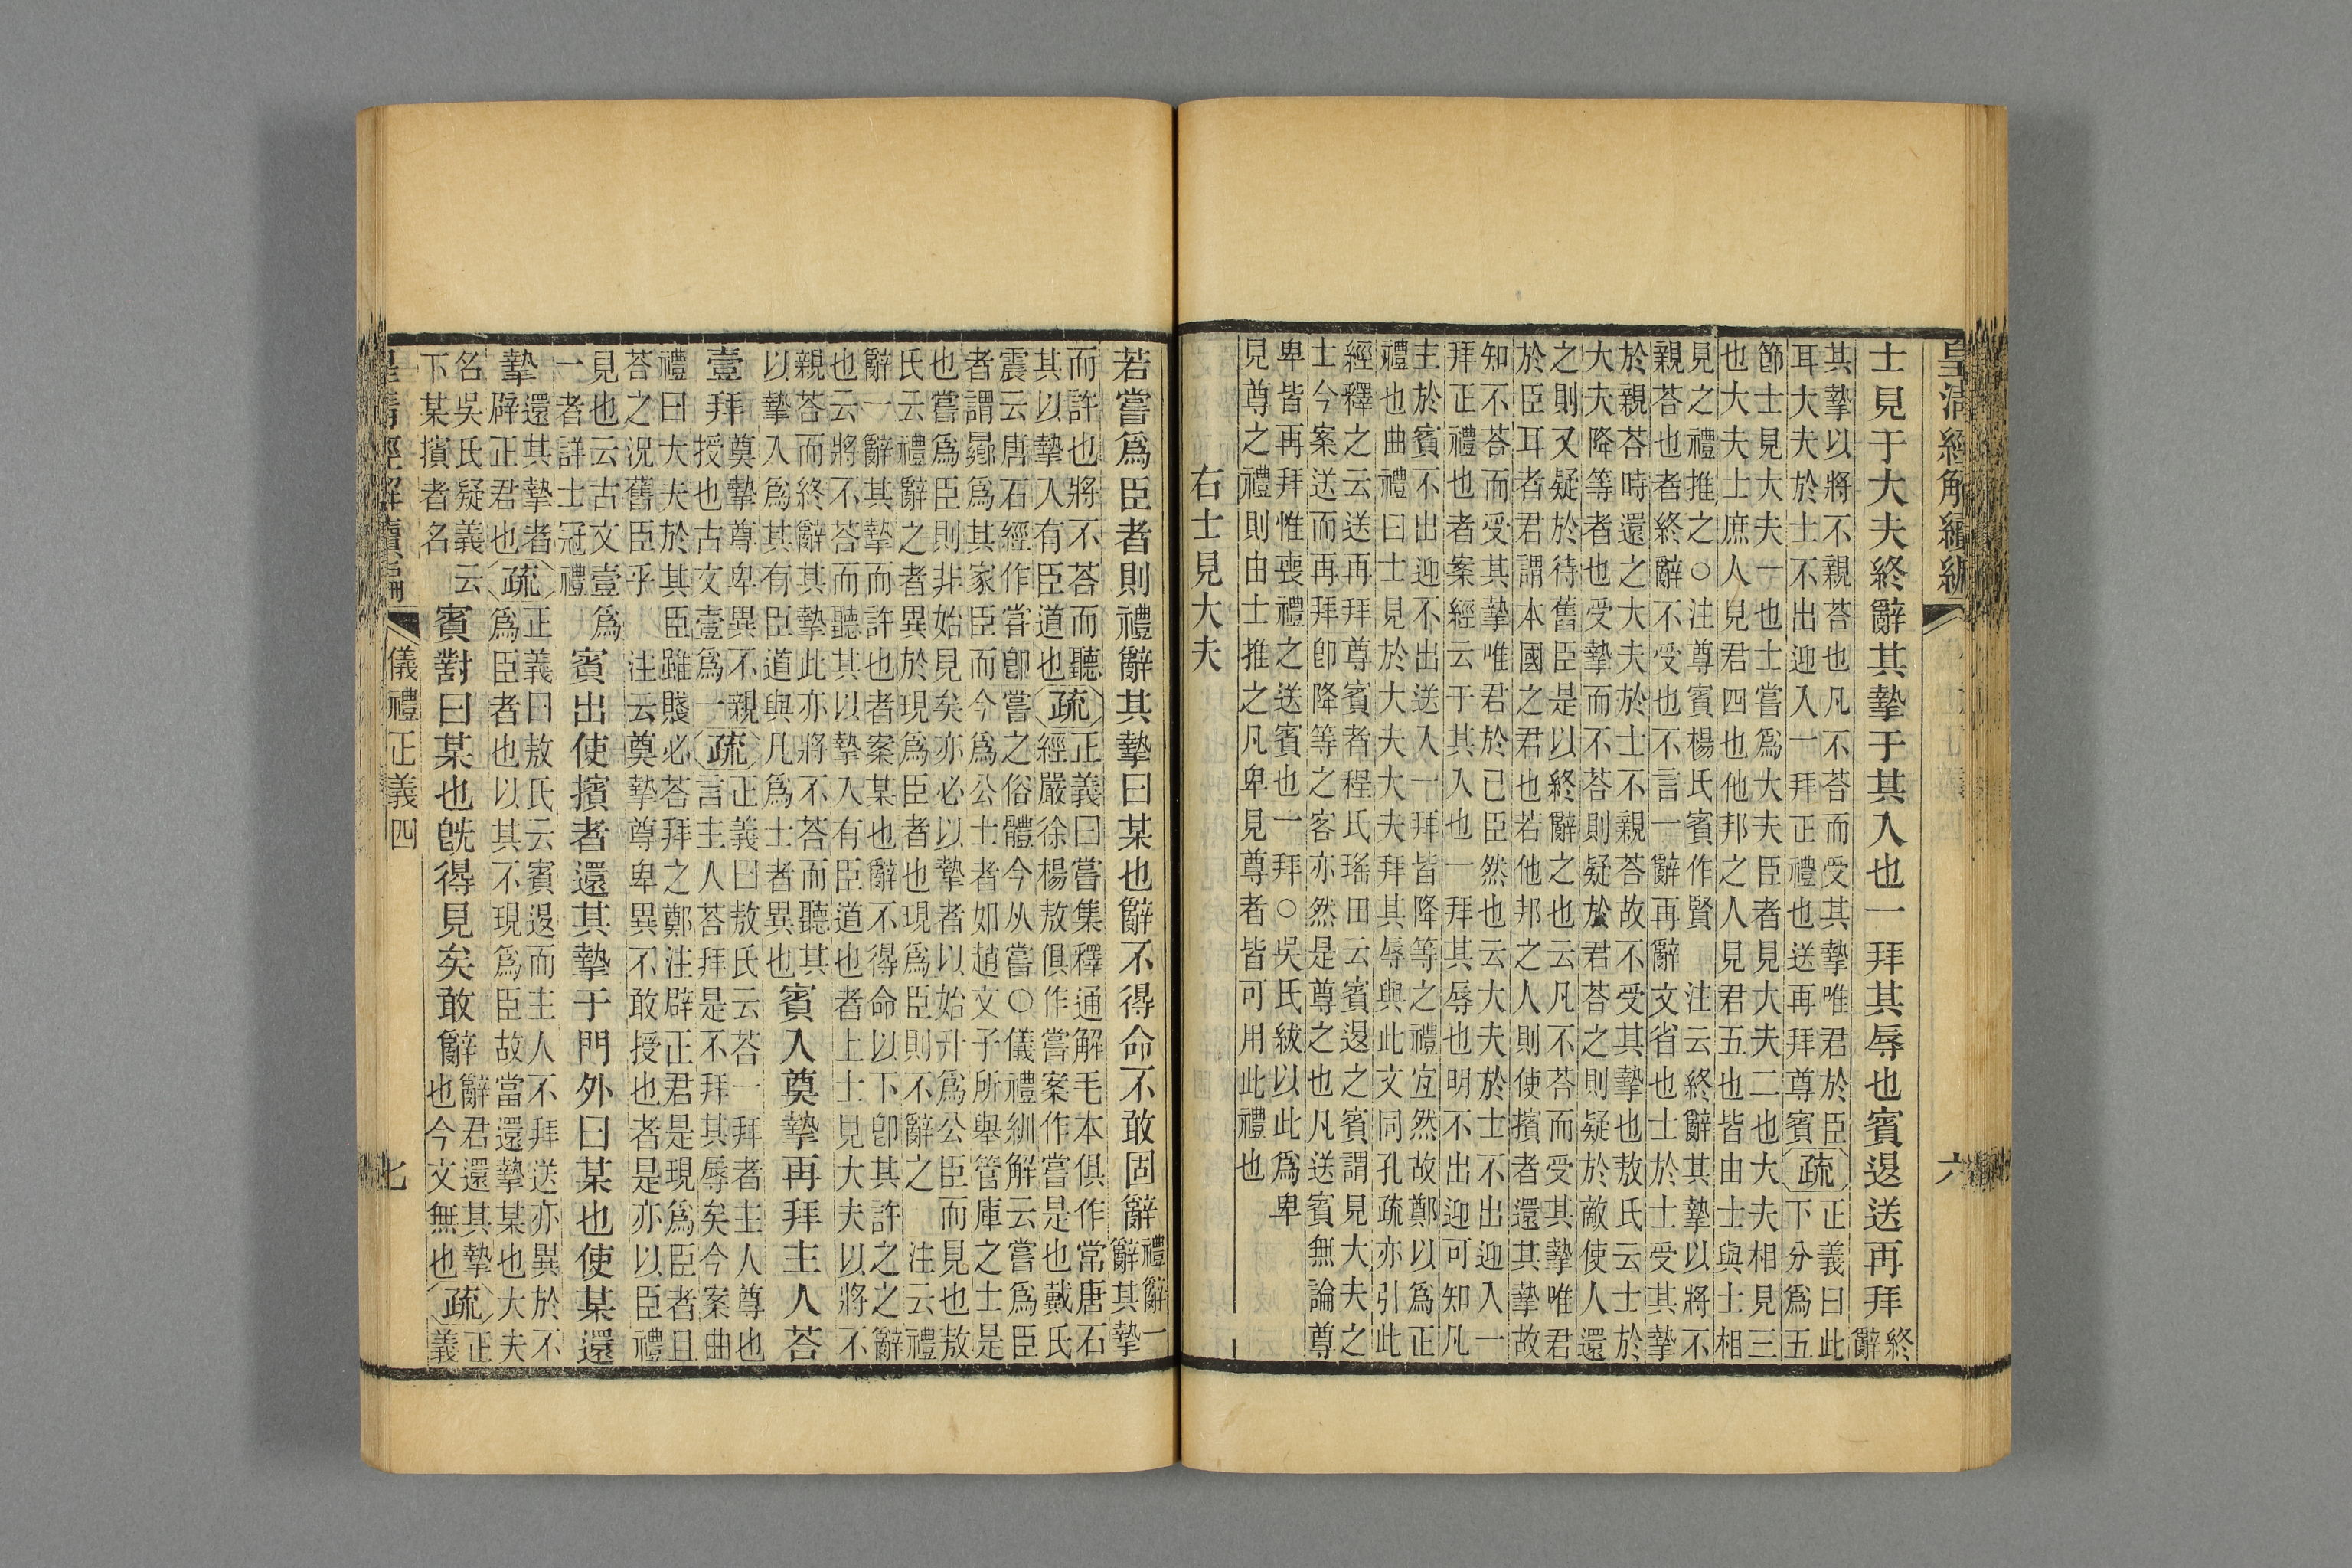 皇清經解續編 六
士見于大夫終辭其摯于其入也一拜其辱也賓退送再拜終
辭
其摯以將不親荅也凡不荅而受其摯唯君於臣
耳大夫於士不出迎入一拜正禮也送再拜尊賓
疏正義曰此
下分爲五
節士見大夫一也士嘗爲大夫臣者見大夫二也大夫相見三
也大夫士庶人見君四也他邦之人見君五也皆由士與士相
見之禮推之○注尊賓楊氏賓作賢　注云終辭其摯以將不
親荅也者終辭不受也不言一辭再辭文省也士於士受其摯
於親荅時還之大夫於士不親荅故不受其摯也敖氏云士於
大夫降等者也受摯而不荅則疑於君荅之則疑於敵使人還
之則又疑於待舊臣是以終辭之也云凡不荅而受其摯唯君
於臣耳者君謂本國之君也若他邦之人則使擯者還其摯故
知不荅而受其摯唯君於已臣然也云大夫於士不出迎入一
拜正禮也者案經云于其入也一拜其辱也明不出迎可知凡
主於賓不出迎不出送入一拜皆降等之禮宐然故鄭以爲正
禮也曲禮曰士見於大夫大夫拜其辱與此文同孔疏亦引此
經釋之云送再拜尊賓者程氏瑤田云賓退之賓謂見大夫之
士今案送而再拜卽降等之客亦然是尊之也凡送賓無論尊
卑皆再拜惟喪禮之送賓也一拜○吳氏紱以此爲卑
見尊之禮則由士推之凡卑見尊者皆可用此禮也
右士見大夫
若嘗爲臣者則禮辭其摯曰某也辭不得命不敢固辭禮辭一
辭其摯
而許也將不荅而聽
其以摯入有臣道也
疏正義曰嘗集釋通解毛本俱作常唐石
經嚴徐楊敖俱作嘗案作嘗是也戴氏
震云唐石經作甞卽嘗之俗體今从嘗○儀禮紃解云嘗爲臣
者謂曏爲其家臣而今爲公士者如趙文子所舉管庫之士是
也嘗爲臣則非始見矣亦必以摯者以始升爲公臣而見也敖
氏云禮辭之者異於現爲臣者也現爲臣則不辭之　注云禮
辭一辭其摯而許也者案某也辭不得命以下卽其許之之辭
也云將不荅而聽其以摯入有臣道也者上士見大夫以將不
親荅而終辭其摯此亦將不荅而聽其
以摯入爲其有臣道與凡爲士者異也
賓入奠摯再拜主人荅
壹拜奠摯尊卑異不親
授也古文壹爲一
疏正義曰敖氏云荅一拜者主人尊也
言主人荅拜是不拜其辱矣今案曲
禮曰大夫於其臣雖賤必荅拜之鄭注辟正君是現爲臣者且
荅之況舊臣乎　注云奠摯尊卑異不敢授也者是亦以臣禮
見也云古文壹爲
一者詳士冠禮
賓出使擯者還其摯于門外曰某也使某還
摯還其摯者
辟正君也
疏正義曰敖氏云賓退而主人不拜送亦異於不
爲臣者也以其不現爲臣故當還摯某也大夫
名吳氏疑義云
下某擯者名
賓對曰某也旣得見矣敢辭辭君還其摯
也今文無也
疏正
義
皇清經解續編 儀禮正義四 七